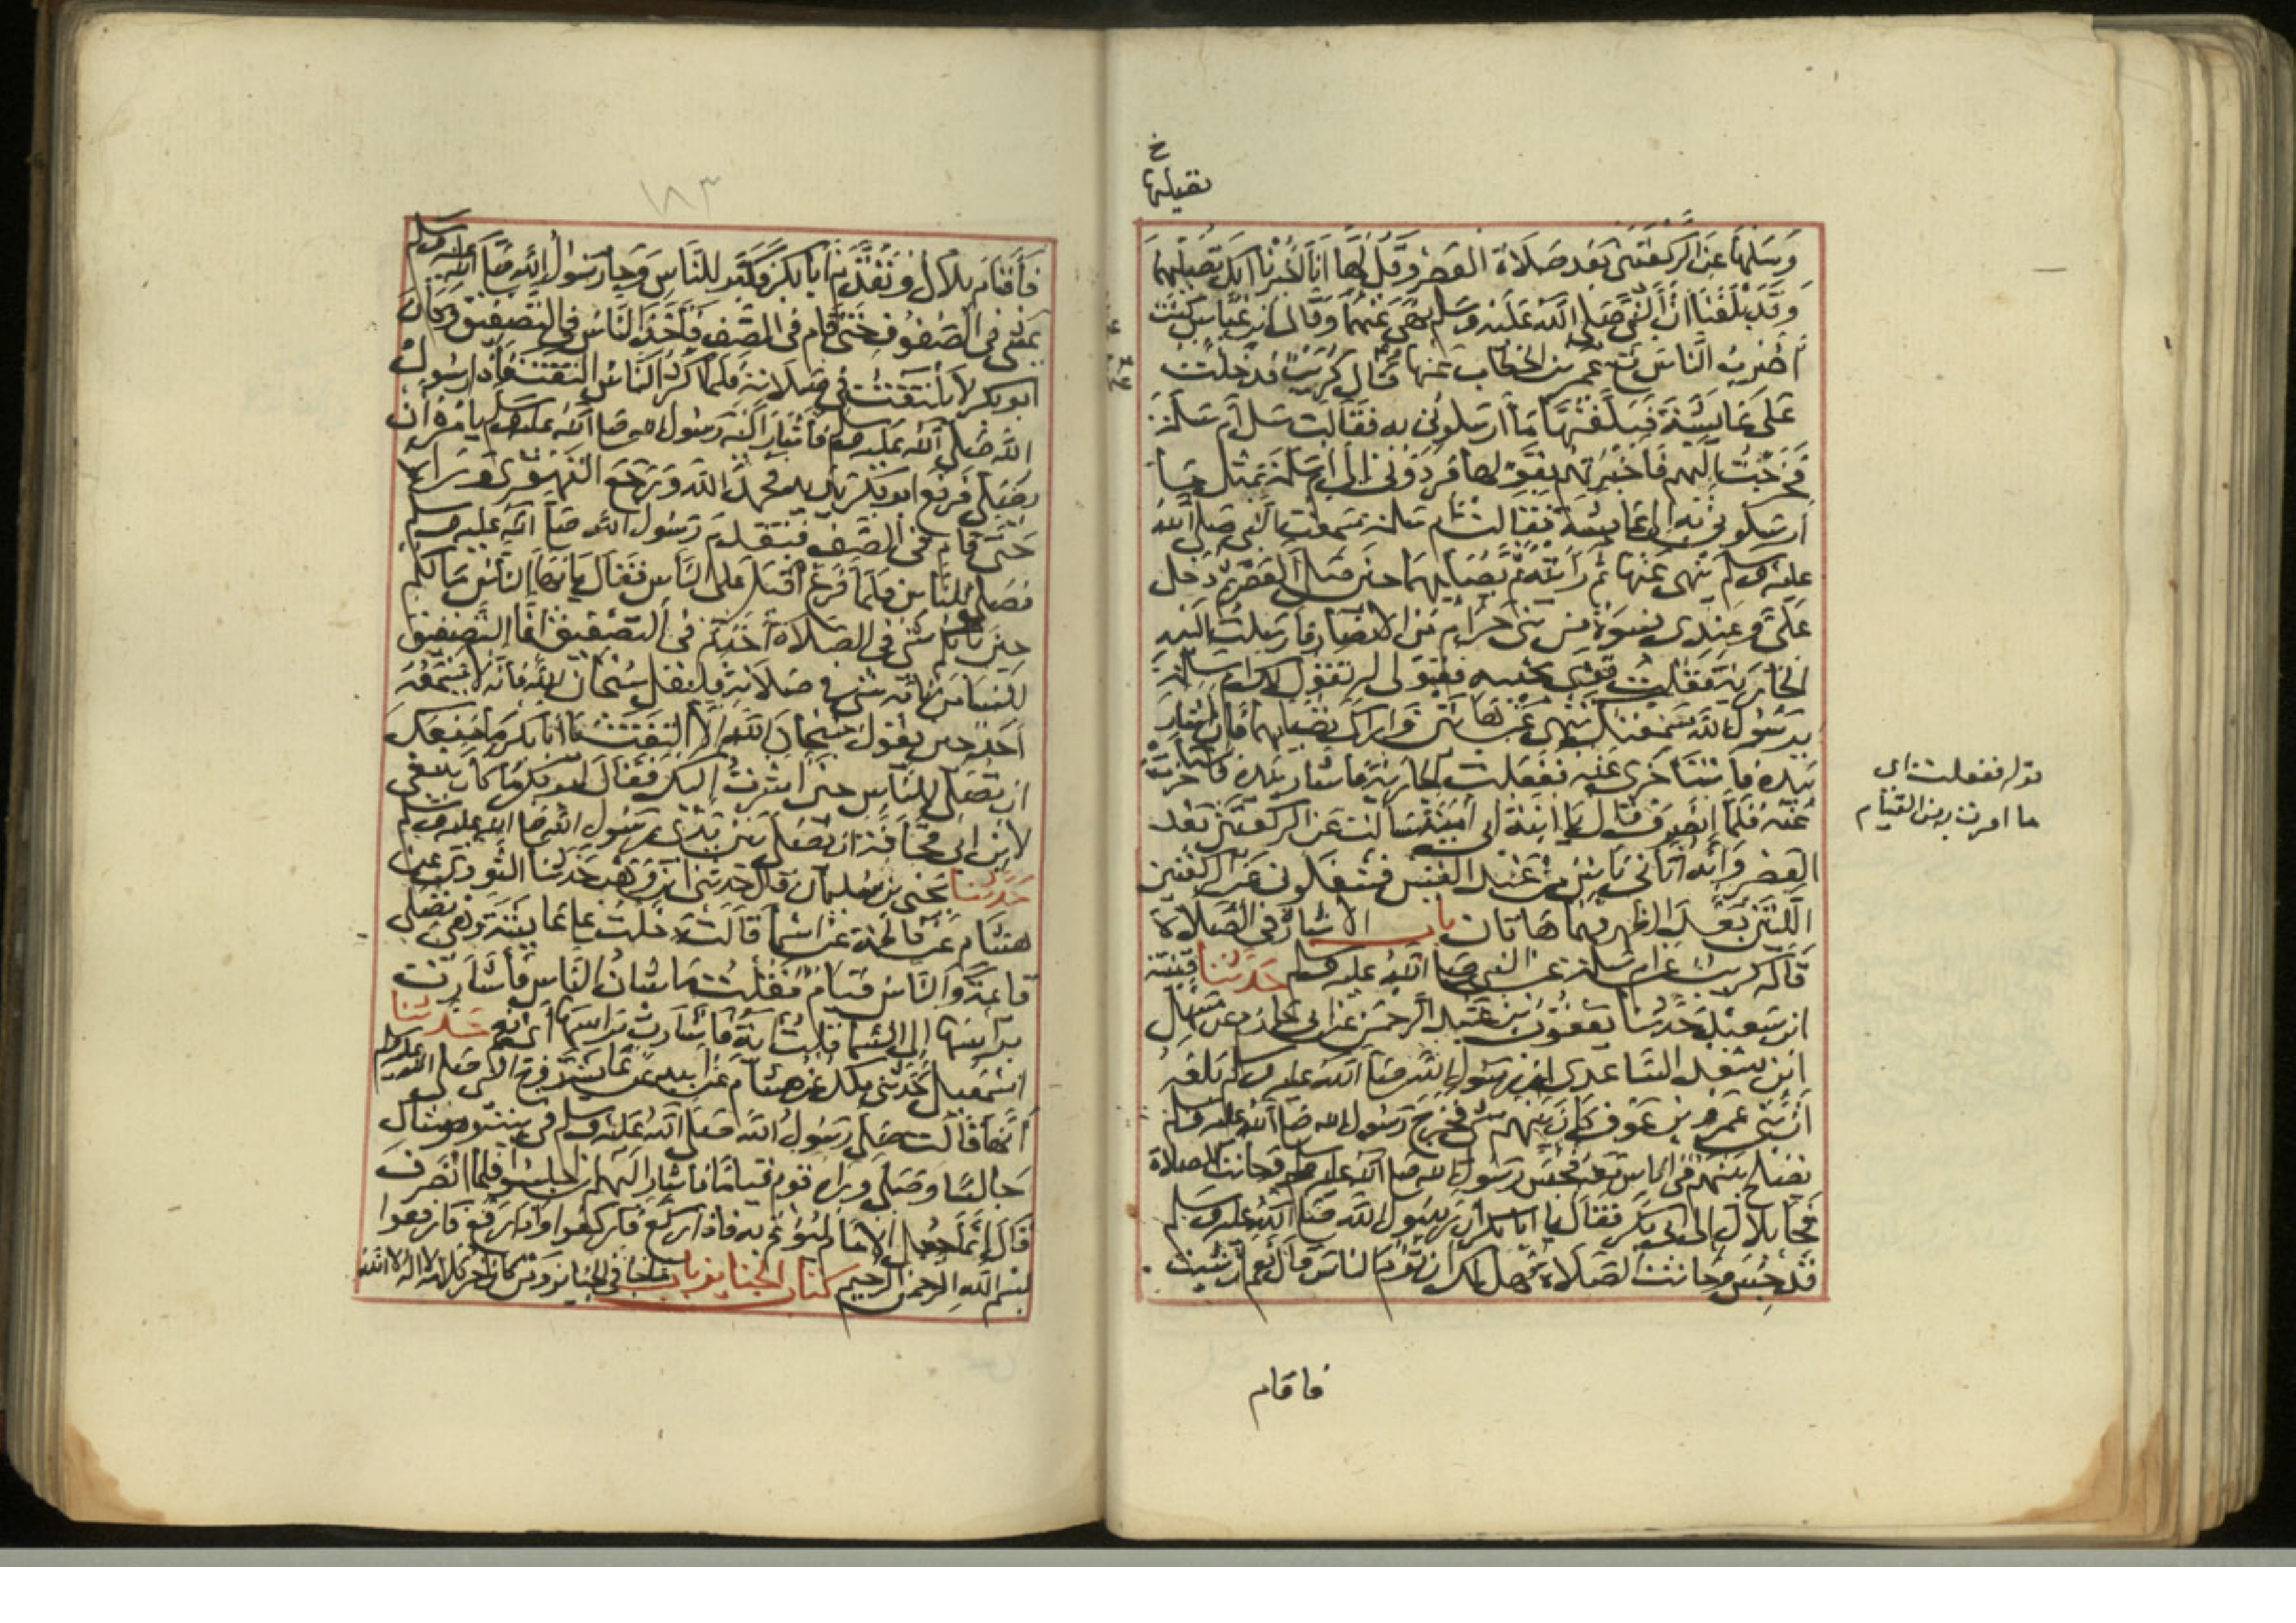 خ
تصليها
وسلها عن الركعتين بعد صلاة العصر وقل لها انا اخبرنا انك تصليهما
وقد بلغنا ان النبي صلى الله عليه وسلم نهى عنهما وقال ابن عباس كنت
اضرب الناس مع عمر بن الخطاب عنها قال كريب فدخلت
على عايشة فبلغتها ما ارسلوني به فقالت سل ام سلمة
فخرجت اليهم فاخبرتهم بقولها فردوني الى ام سلمة بمثل ما
ارسلوني به الى عايشة فقالت ام سلمة سمعت النبي صلى الله
عليه وسلم ينهى عنها ثم رأيته يصليهما حين صلى العصر ثم دخل
علي وعندي نسوة من بني حرام من الانصار فارسلت اليه
الجارية فقلت قومي بجنبه فقولي له تقول لك ام سلمة
يرسول الله سمعتك تنهى عن هاتين واراك تصليهما فان اشار
بيده فاستأخري عنه ففعلت الجارية فاشار بيده فاستأخرت
عنه فلما انصرف قال يا ابنة ابي امية سالت عن الركعتين بعد
العصر وانه اتاني ناس من عبد القيس فشغلوني عن الركعتين
اللتين بعد الظهر فهما هاتان باب الاشارة في الصلاة
قاله كريب عن ام سلمة عن النبي صلى الله عليه وسلم حدثنا قتيبة
ابن سعيد حدثنا يعقوب بن عبد الرحمن عن ابي حازم عن سهل
ابن سعد الساعدي ان رسول الله صلى الله عليه وسلم بلغه
ان بني عمرو بن عوف كان بينهم شي فخرج رسول الله صلى الله عليه وسلم
يصلح بينهم في اناس معه فحبس رسول الله صلى الله عليه وسلم وحانت الصلاة
فجا بلال الى ابي بكر فقال يا ابا بكر ان رسول الله صلى الله عليه وسلم
قد حبس وحانت الصلاة فهل لك ان تؤم الناس قال نعم ان شيت
قوله ففعلت اي
ما امرت به من القيام
فاقام
١٨٣
فأقام بلال وتقدم ابا بكر فكبر للناس وجا رسول الله صلى الله عليه وسلم
يمشي في الصفوف حتى قام في الصف فأخذ الناس في التصفيق وكان
ابو بكر لا يلتفت في صلاته فلما اكثر الناس التفت فاذا رسول
الله صلى الله عليه وسلم فأشار اليه رسول الله صلى الله عليه وسلم يامره ان
يصلي فرفع ابو بكر يديه فحمد الله ورجع القهقرى وراه
حتى قام في الصف فتقدم رسول الله صلى الله عليه وسلم
فصلى للناس فلما فرغ اقبل على الناس فقال يا ايها الناس مالكم
حين نابكم شي في الصلاة أخذتم في التصفيق انما التصفيق
للنسا من نابه شي في صلاته فليقل سبحان الله فانه لا يسمعه
احد حين يقول سبحان الله الا التفت يا ابا بكر ما منعك
ان تصلي للناس حين اشرت اليك فقال ابو بكر ما كان ينبغي
لابن ابي قحافة ان يصلي بين يدي رسول الله صلى الله عليه وسلم
حدثنا يحيى بن سليمان قال حدثني ابن وهب حدثنا الثوري عن
هشام عن فاطمة عن اسما قالت دخلت على عايشة وهي تصلي
قايمة والناس قيام فقلت ما شان الناس فأشارت
براسها الى السما فقلت آية فأشارت براسها اي نعم حدثنا
اسمعيل حدثني ملك عن هشام عن ابيه عن عايشة زوج النبي صلى الله عليه وسلم
أنها قالت صلى رسول الله صلى الله عليه وسلم في بيته وهو شاك
جالسا وصلى وراه قوم قياما فاشار اليهم ان اجلسوا فلما انصرف
قال انما جعل الامام ليؤتم به فاذا ركع فاركعوا واذا رفع فارفعوا
بسم الله الرحمن الرحيم كتاب الجنايز باب ما جا في الجنايز ومن كان اخر كلامه لا اله الا الله